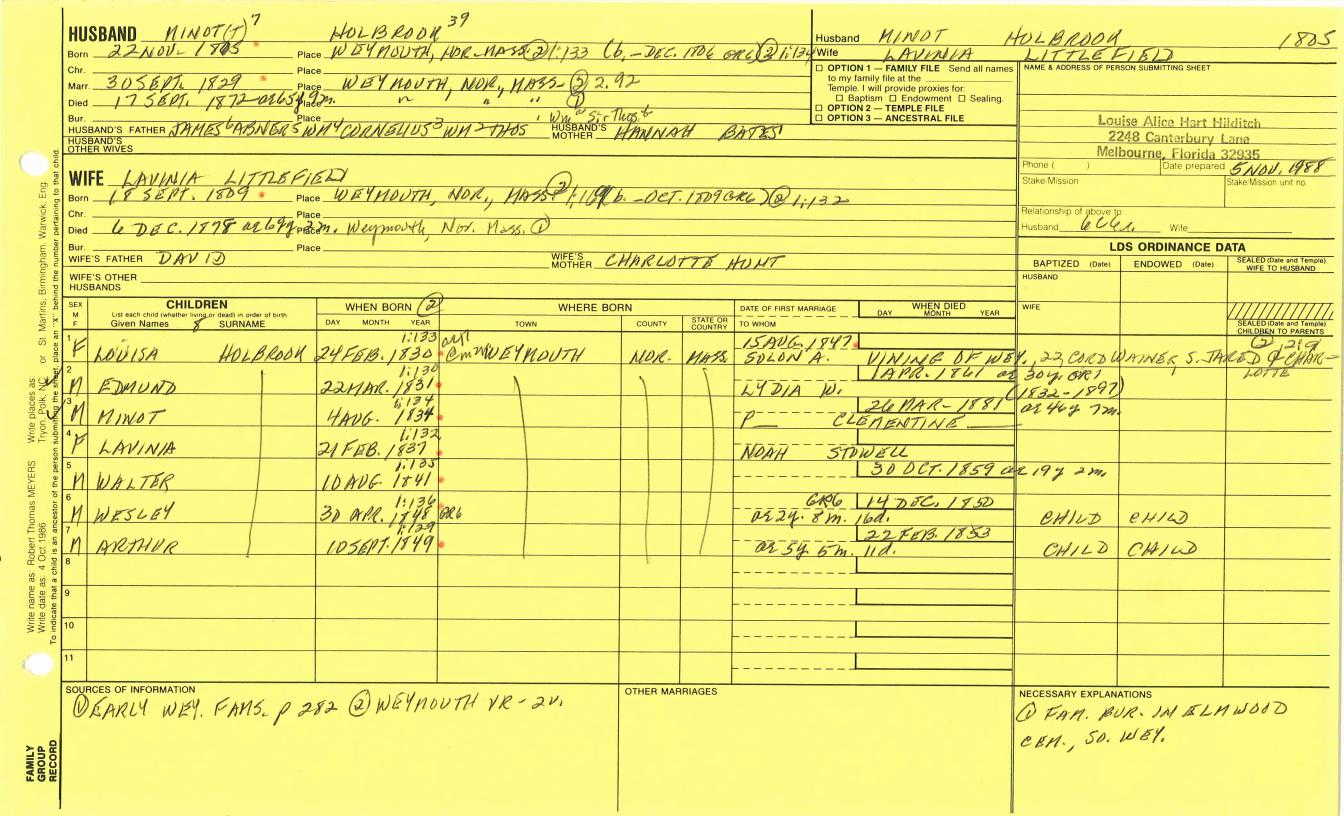 HUSBAND MINOT(T) 7 HOLBROOK 39
Born 22 NOV. 1805 Place WEYMOUTH, NOR. MASS. (2) 1:133 (b. - DEC. 1806 GR6) (2) 1:134
Chr. Place
Marr. 30 SEPT. 1829 Place WEYMOUTH, NOR., MASS - (2) 2.92
Died 17 SEPT. 1872 Place " " " (1)
Bur. Place Wm Sir Thos
HUSBAND'S FATHER JAMES 6 ABNER 5 WM 4 CORNELIUS 3 WM 2 THOS HUSBAND'S MOTHER HANNAH BATES
HUSBAND'S OTHER WIVES
WIFE LAVINIA LITTLEFIELD
Born 18 SEPT. 1809 Place WEYMOUTH, NOR., MASS (2) (b. - OCT. 1809 GR6) (2) 1:132
Chr. Place
Died 6 DEC. 1878 ae 69y 2m. Place Weymouth, Nor. Mass. (1)
Bur. Place
WIFE'S FATHER DAVID WIFE'S MOTHER CHARLOTTE HUNT
WIFE'S OTHER HUSBANDS
Husband MINOT HOLBROOK 1805
Wife LAVINIA LITTLEFIELD
☐ OPTION 1 — FAMILY FILE Send all names
to my family file at the
Temple. I will provide proxies for:
☐ Baptism ☐ Endowment ☐ Sealing.
☐ OPTION 2 — TEMPLE FILE
☐ OPTION 3 — ANCESTRAL FILE
NAME & ADDRESS OF PERSON SUBMITTING SHEET
Louise Alice Hart Hilditch
2248 Canterbury Lane
Melbourne, Florida 32935
Phone ( ) Date prepared 5 NOV. 1988
Stake/Mission Stake/Mission unit no.
Relationship of above to:
Husband 6C6R Wife
LDS ORDINANCE DATA
BAPTIZED (Date) ENDOWED (Date) SEALED (Date and Temple) WIFE TO HUSBAND
HUSBAND
WIFE
SEALED (Date and Temple) CHILDREN TO PARENTS
SEX M F CHILDREN WHEN BORN (2) WHERE BORN DATE OF FIRST MARRIAGE WHEN DIED
List each child (whether living or dead) in order of birth
Given Names 8 SURNAME DAY MONTH YEAR TOWN COUNTY STATE OR COUNTRY TO WHOM DAY MONTH YEAR
1 1:133 15 AUG. 1847 (2)
F LOUISA HOLBROOK 24 FEB. 1830 WEYMOUTH NOR. MASS SOLON A. VINING OF WEY., 22, CORDWAINER S. JARED & CHARLOTTE
2 1:130 1 APR. 1861 ae 30y. GR1
M EDMUND 22 MAR. 1831 LYDIA W. (1832-1897)
3 1:134 26 MAR - 1881 ae 46y 7m.
M MINOT 4 AUG. 1834 P__ CLEMENTINE
4 1:132
F LAVINIA 21 FEB. 1837 NOAH STOWELL
5 1:135 30 OCT. 1859 ae 19y 2m.
M WALTER 10 AUG. 1841
6 1:136 GR6 14 DEC. 1850
M WESLEY 30 APR. 1848 GR6 ae 2y. 8m. 16d. CHILD CHILD
7 1:129 22 FEB. 1853
M ARTHUR 10 SEPT. 1849 ae 5y 5m. 11d. CHILD CHILD
8
9
10
11
SOURCES OF INFORMATION
(1) EARLY WEY. FAMS. p 282 (2) WEYMOUTH VR - 2V.
OTHER MARRIAGES
NECESSARY EXPLANATIONS
(1) FAM. BUR. IN ELMWOOD
CEM., SO. WEY.
Write name as: Robert Thomas MEYERS Write places as:
Write date as: 4 Oct 1986 Tryon, Polk, NC or St. Martins, Birmingham, Warwick, Eng.
To indicate that a child is an ancestor of the person submitting the sheet, place an "X" behind the number pertaining to that child.
FAMILY GROUP RECORD